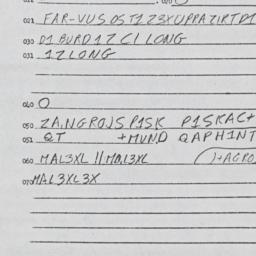 021 FAR-VUS OST1Z3XUPPAZIRTD1
030 D1 BURD1Z C/ LONG
031 1ZLONG
040 O
050 ZA.NGROJS P1SK P1SKAC+
051 QT +MUND QAPH1NT
060 MAL3XL // MAL3XL )+AGRO
070 MAL3XL3X